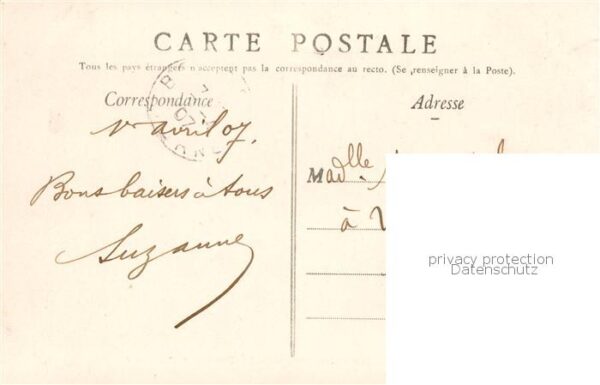 CARTE POSTALE
Tous les pays étrangers n'acceptent pas la correspondance au recto. (Se renseigner à la Poste).
Correspondance
Adresse
avril 07.
Bons baisers à tous
Suzanne
M
à
privacy protection
Datenschutz